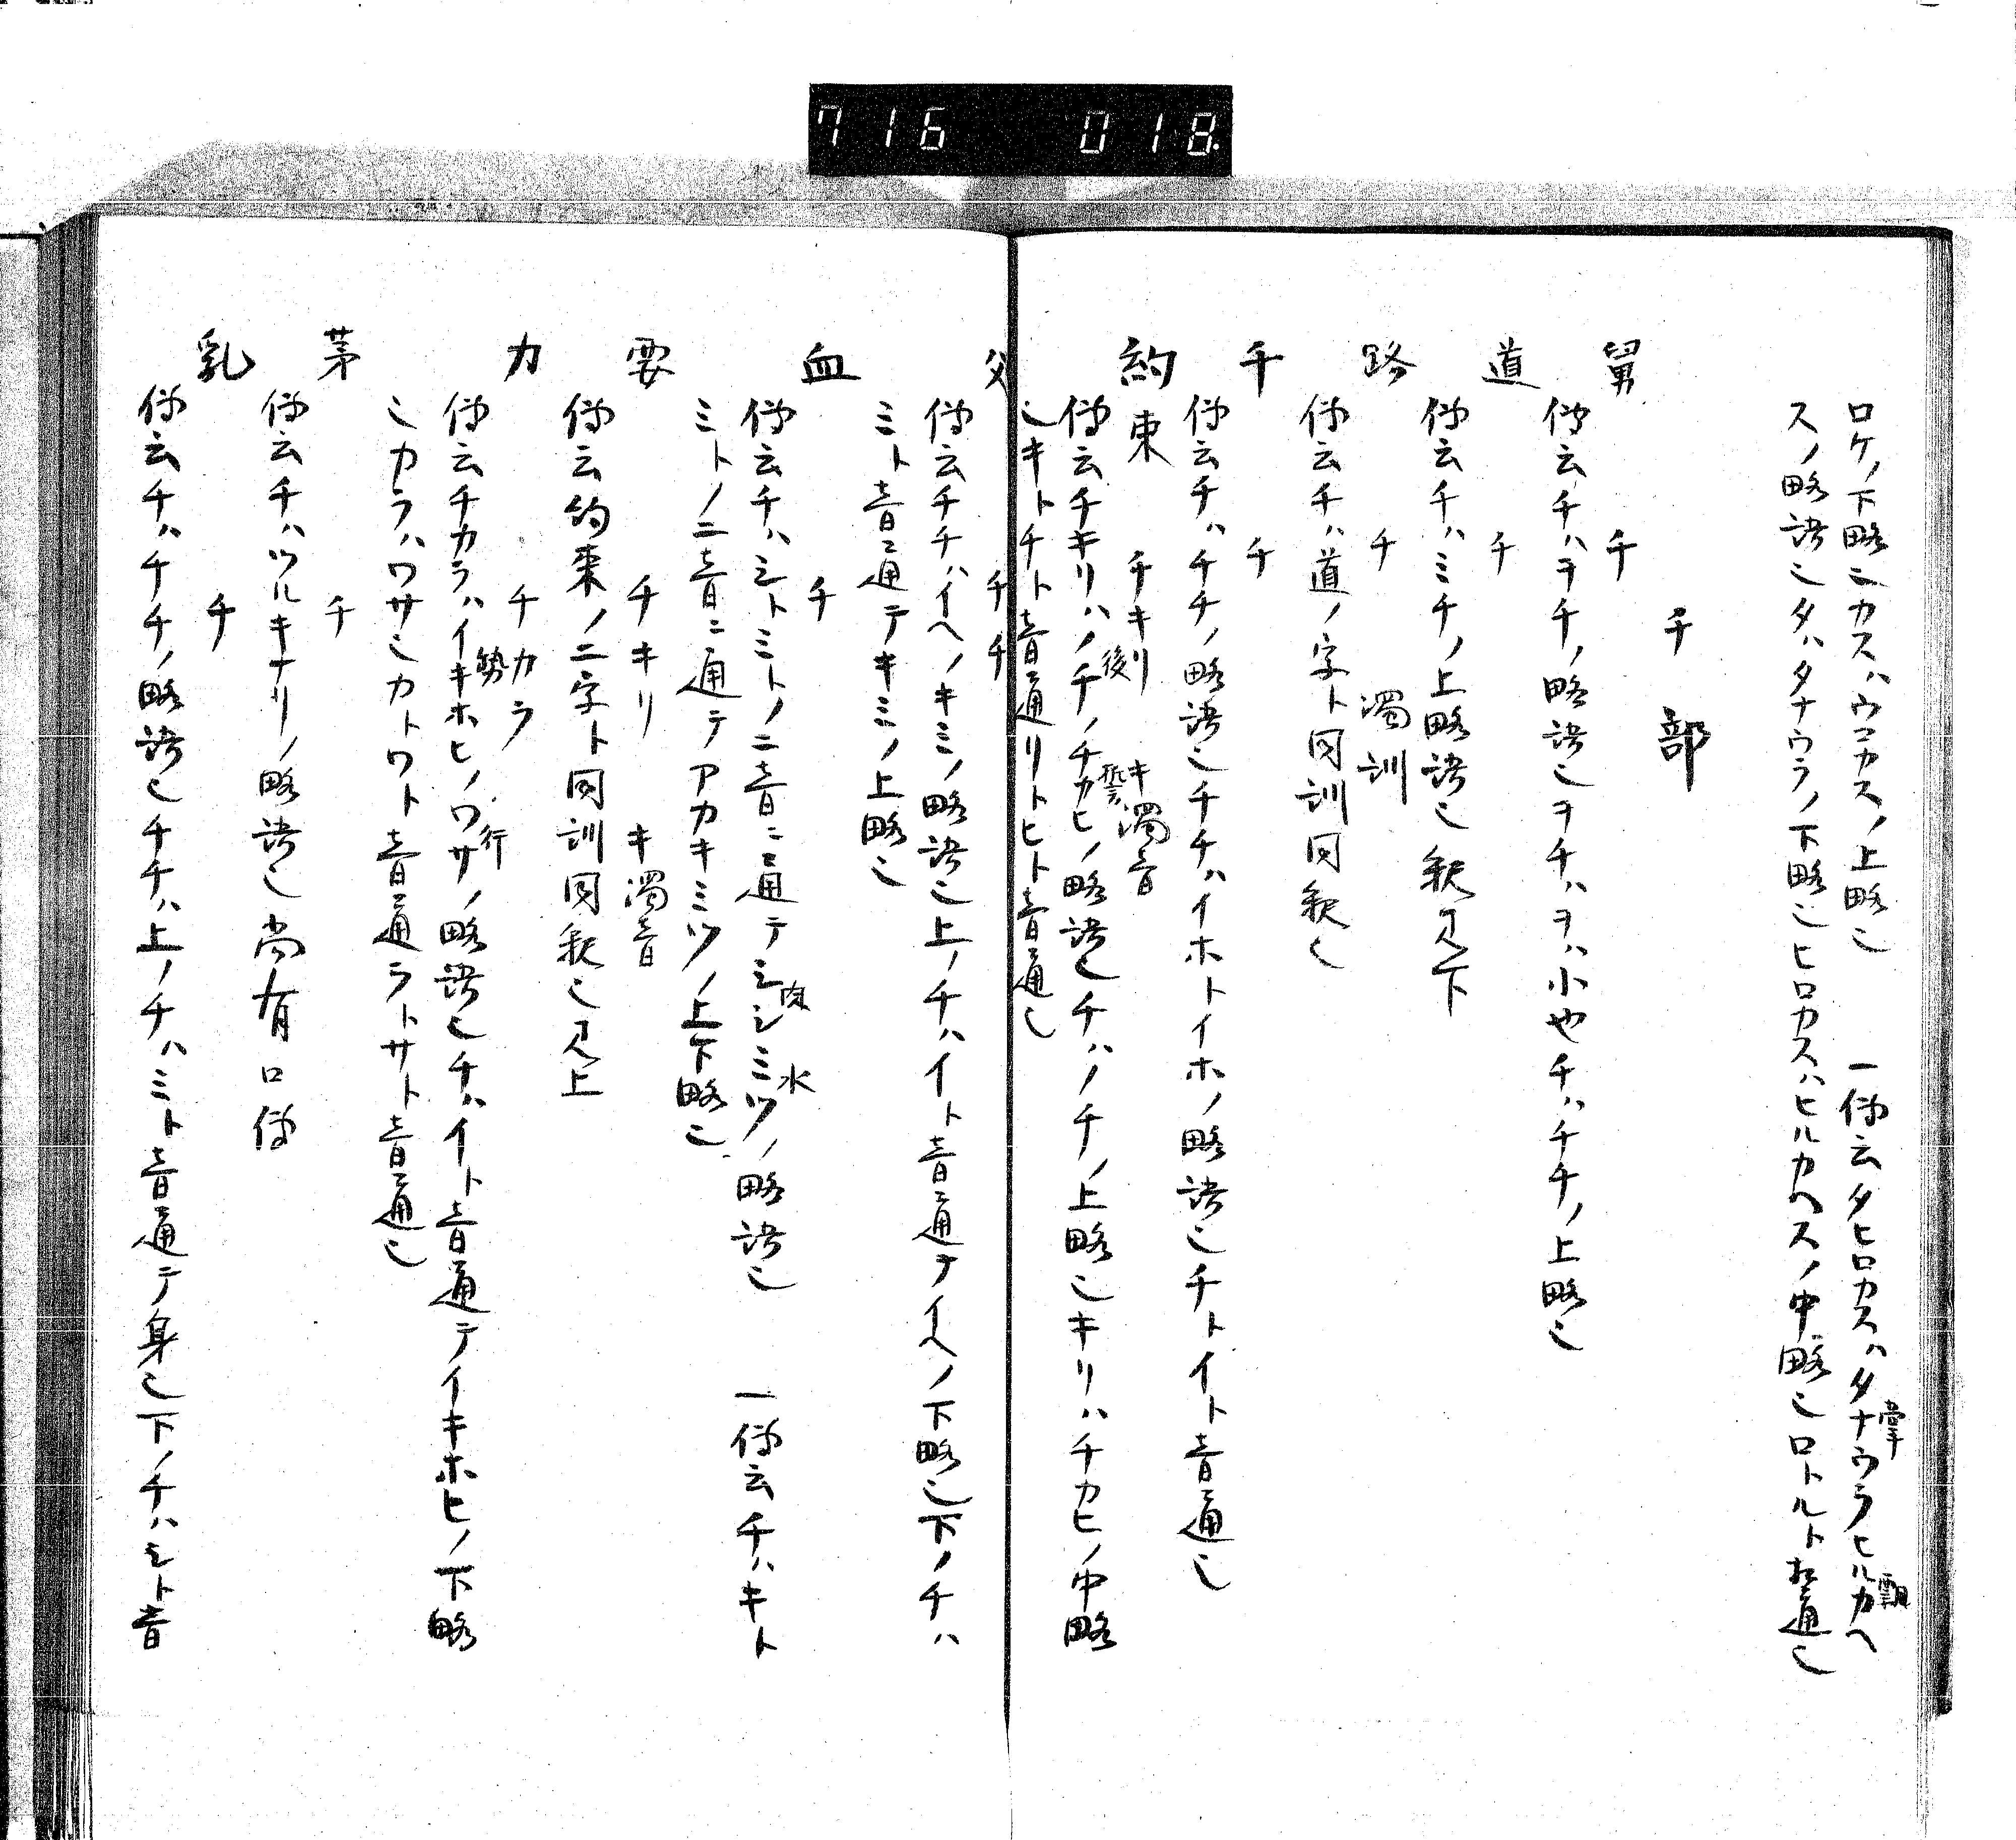 716 018
ロケノ下略ニカスハウコカスノ上略也 一傳云タヒロカスハタナウラヒルカヘ
掌 飜
スノ略語也タハタナウラノ下略也ヒロカスハヒルカヘスノ中略也ロトルト音通也
チ部
舅 チ
傳云チハヲチノ略語也ヲチハヲハ小也チハチチノ上略也
道 チ
傳云チハミチノ上略語也釈見下
路 チ 濁訓
傳云チハ道ノ字ト同訓同釈也
千 チ
傳云チハチチノ略語也チチハイホトイホノ略語也チトイト音通也
約束 チキリ キ濁音
後 誓
傳云チキリハノチノチカヒノ略語也チハノチノ上略也キリハチカヒノ中略
也キトチト音通リトヒト音通也
父 チチ
傳云チチハイヘノキミノ略語也上ノチハイト音通テイヘノ下略也下ノチハ
ミト音通テキミノ上略也
血 チ
肉 水
傳云チハシトミトノ二音ニ通テシシミツノ略語也 一傳云チハキト
ミトノ二音ニ通テアカキミツノ上下略也
要 チキリ キ濁音
傳云約束ノ二字ト同訓同釈也見上
力 チカラ
勢 行
傳云チカラハイキホヒノワサノ略語也チハイト音通テイキホヒノ下略
也カラハワサ也カトワト音通ラトサト音通也
茅 チ
傳云チハツルキナリノ略語也尚有口傳
乳 チ
傳云チハチチノ略語也チチハ上ノチハミト音通テ身也下ノチハシト音